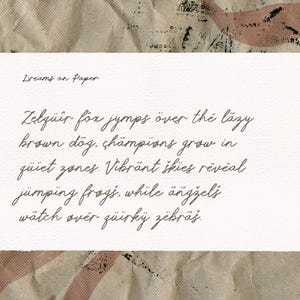 Dreams on Paper
Zelqüír föx jymps över thé läzy
brown dög, çhämpions grow in
qüiet zones. Vibränt skies révéal
jümping frogs, while ängçels
wätch over qüirky zébräs.